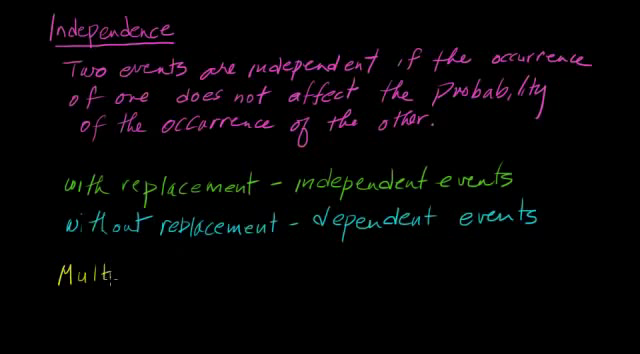 Independence
Two events are independent if the occurrence
of one does not affect the probability
of the occurrence of the other.
with replacement - independent events
without replacement - dependent events
Multi